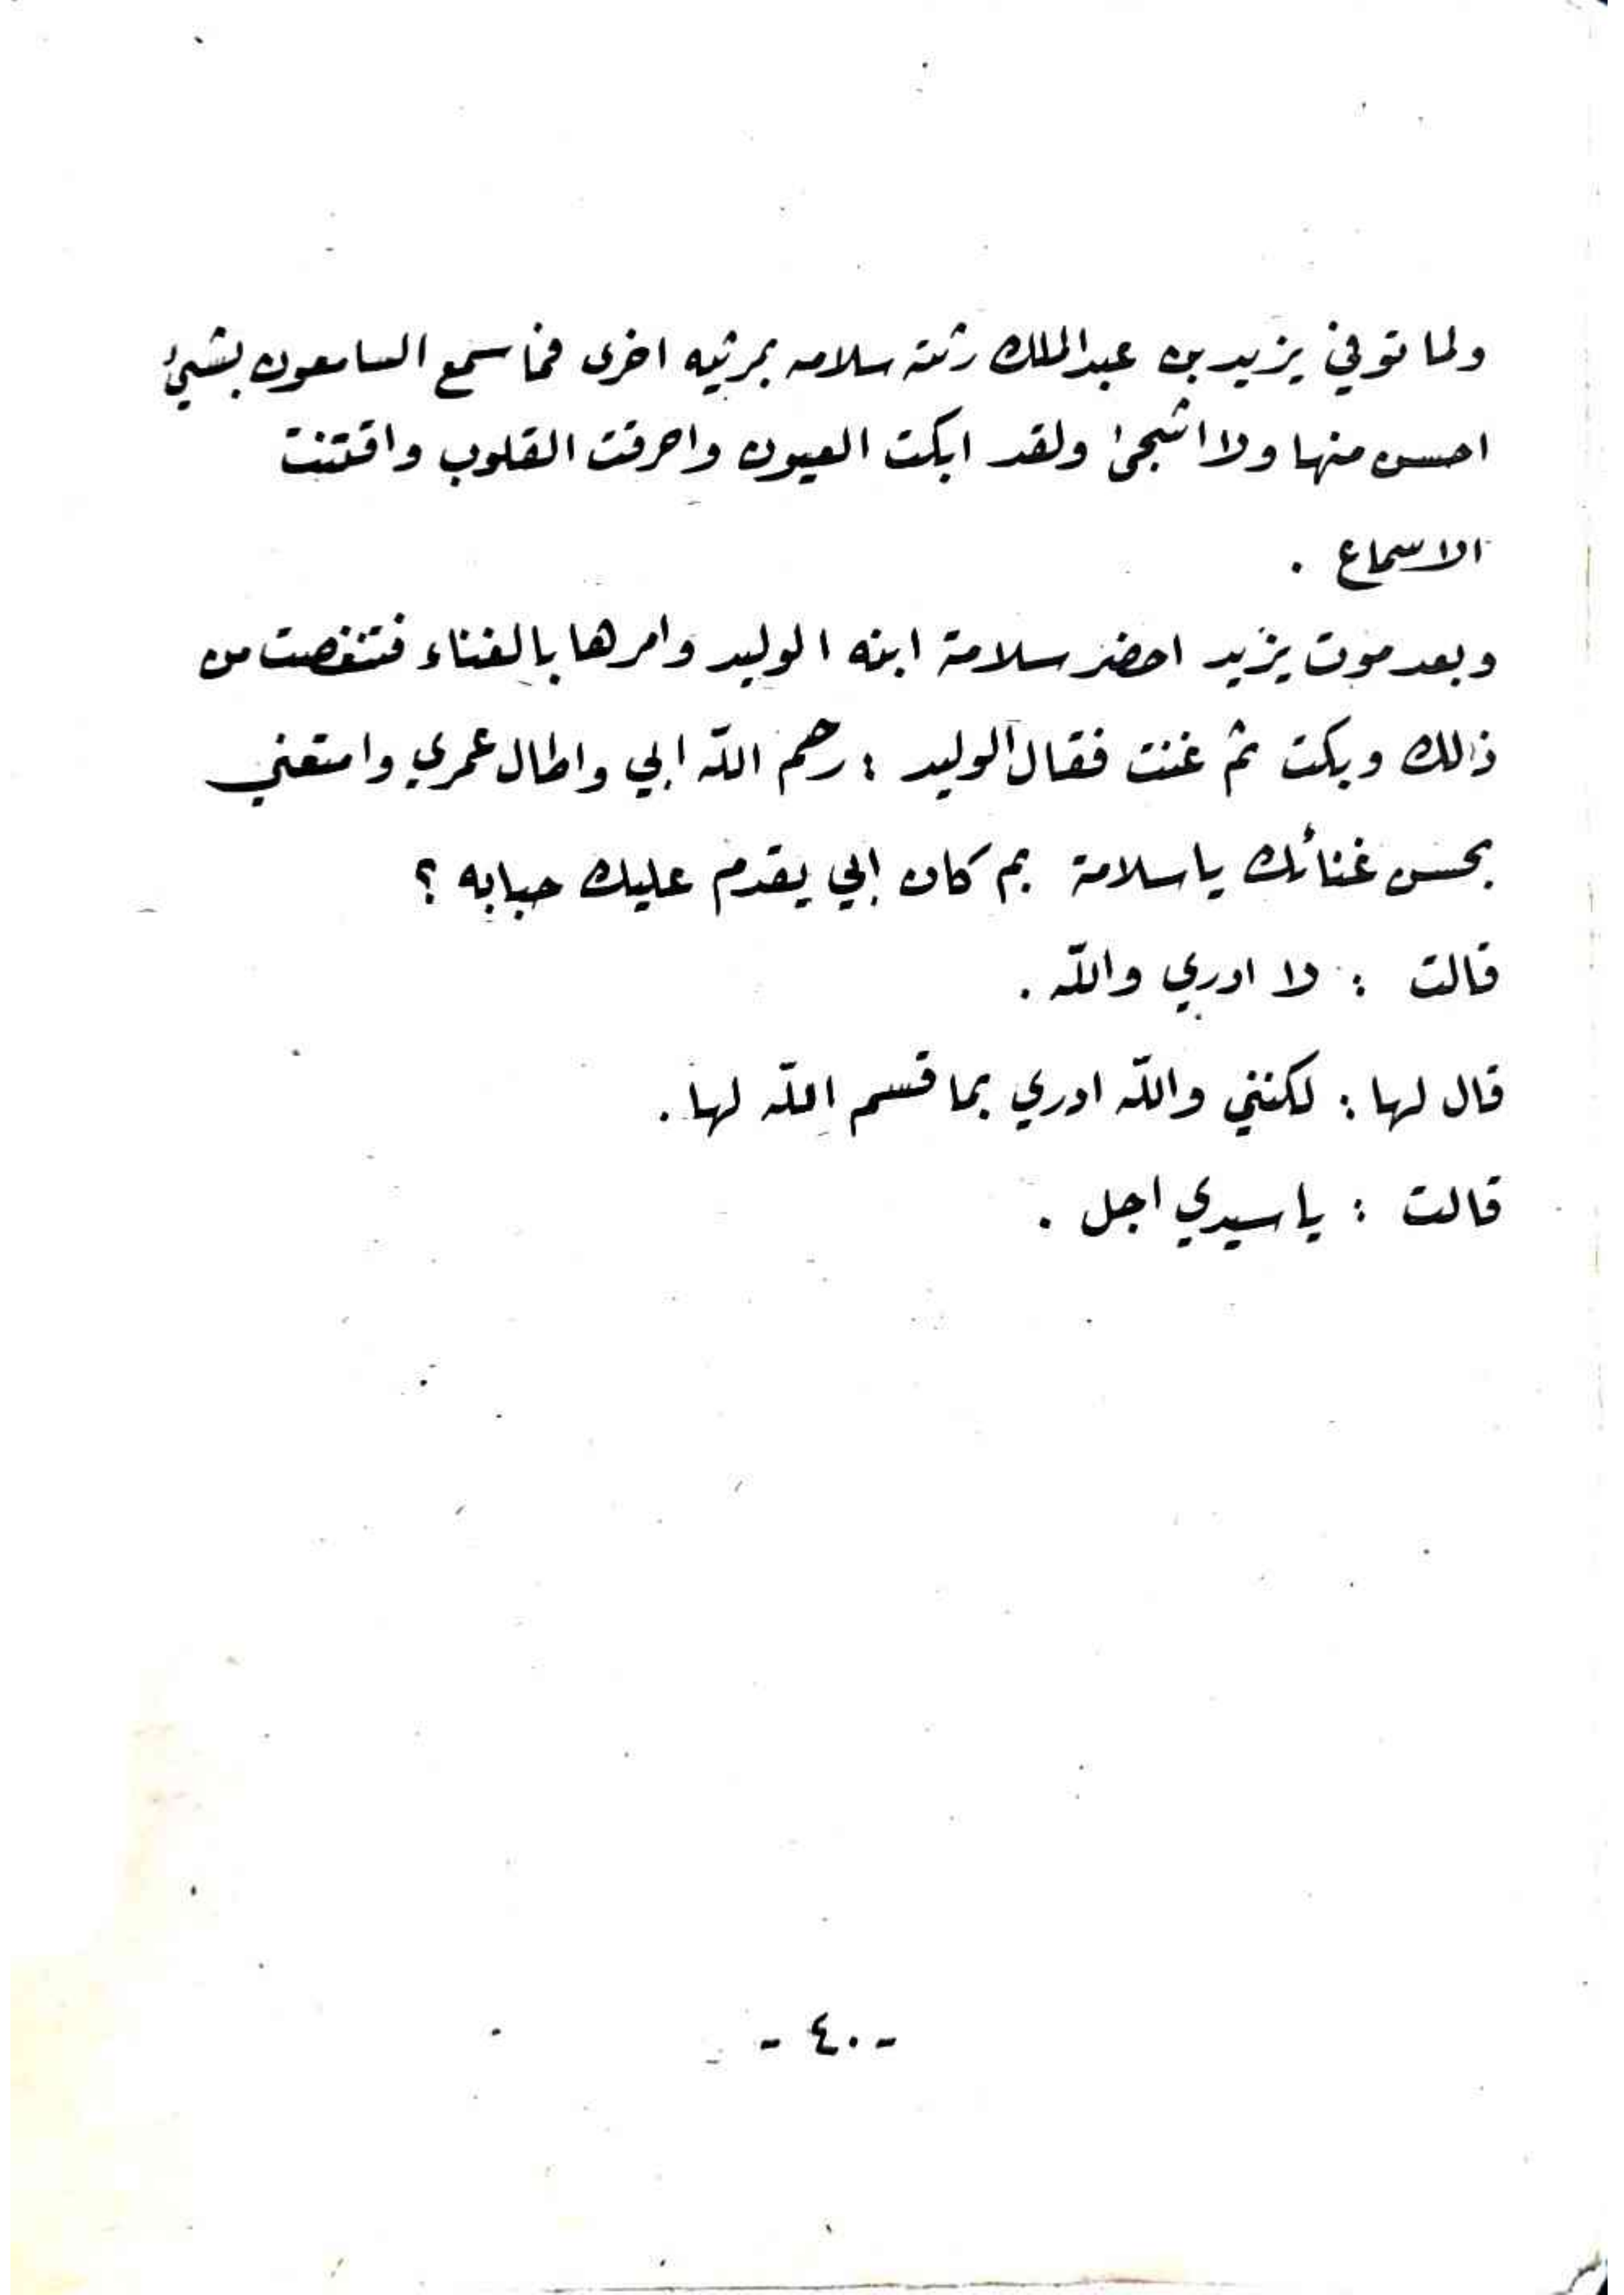 ولما توفي يزيد بن عبد الملك رثته سلامه بمرثيه اخرى فما سمع السامعون بشيئ
احسن منها ولا اشجى ولقد ابكت العيون واحرقت القلوب وافتتنت
الاسماع .
وبعد موت يزيد احضر سلامة ابنه الوليد وامرها بالغناء فتنغصت من
ذالك وبكت ثم غنت فقال الوليد : رحم الله ابي واطال عمري وامتعني
بحسن غنائك ياسلامة بم كان إبي يقدم عليك حبابه ؟
قالت : لا ادري والله .
قال لها : لكنني والله ادري بما قسم الله لها .
قالت : ياسيدي اجل .
- ٤٠ -